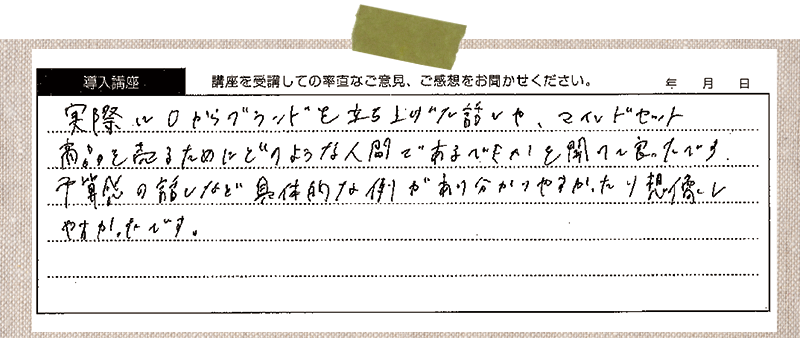 導入講座
講座を受講しての率直なご意見、ご感想をお聞かせください。
年 月 日
実際に0からブランドを立ち上げた話しや、マインドセット
商品を売るためにどのような人間であるべきかを聞けて良かったです.
予算感の話しなど具体的な例があり分かりやすかったり想像し
やすかったです。